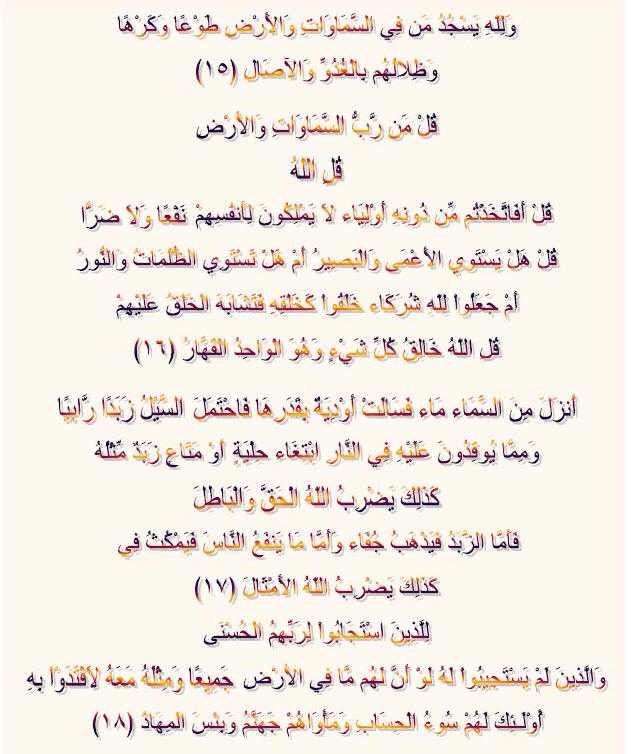 وَلِلّهِ يَسْجُدُ مَن فِي السَّمَاوَاتِ وَالأَرْضِ طَوْعًا وَكَرْهًا
وَظِلالُهُم بِالْغُدُوِّ وَالآصَالِ (١٥)
قُلْ مَن رَّبُّ السَّمَاوَاتِ وَالأَرْضِ
قُلِ اللّهُ
قُلْ أَفَاتَّخَذْتُم مِّن دُونِهِ أَوْلِيَاء لاَ يَمْلِكُونَ لِأَنفُسِهِمْ نَفْعًا وَلاَ ضَرًّا
قُلْ هَلْ يَسْتَوِي الأَعْمَى وَالْبَصِيرُ أَمْ هَلْ تَسْتَوِي الظُّلُمَاتُ وَالنُّورُ
أَمْ جَعَلُواْ لِلّهِ شُرَكَاء خَلَقُواْ كَخَلْقِهِ فَتَشَابَهَ الْخَلْقُ عَلَيْهِمْ
قُلِ اللّهُ خَالِقُ كُلِّ شَيْءٍ وَهُوَ الْوَاحِدُ الْقَهَّارُ (١٦)
أَنزَلَ مِنَ السَّمَاء مَاء فَسَالَتْ أَوْدِيَةٌ بِقَدَرِهَا فَاحْتَمَلَ السَّيْلُ زَبَدًا رَّابِيًا
وَمِمَّا يُوقِدُونَ عَلَيْهِ فِي النَّارِ ابْتِغَاء حِلْيَةٍ أَوْ مَتَاعٍ زَبَدٌ مِّثْلُهُ
كَذَلِكَ يَضْرِبُ اللّهُ الْحَقَّ وَالْبَاطِلَ
فَأَمَّا الزَّبَدُ فَيَذْهَبُ جُفَاء وَأَمَّا مَا يَنفَعُ النَّاسَ فَيَمْكُثُ فِي
كَذَلِكَ يَضْرِبُ اللّهُ الأَمْثَالَ (١٧)
لِلَّذِينَ اسْتَجَابُواْ لِرَبِّهِمُ الْحُسْنَى
وَالَّذِينَ لَمْ يَسْتَجِيبُواْ لَهُ لَوْ أَنَّ لَهُم مَّا فِي الأَرْضِ جَمِيعًا وَمِثْلَهُ مَعَهُ لاَفْتَدَوْاْ بِهِ
أُوْلَـئِكَ لَهُمْ سُوءُ الْحِسَابِ وَمَأْوَاهُمْ جَهَنَّمُ وَبِئْسَ الْمِهَادُ (١٨)